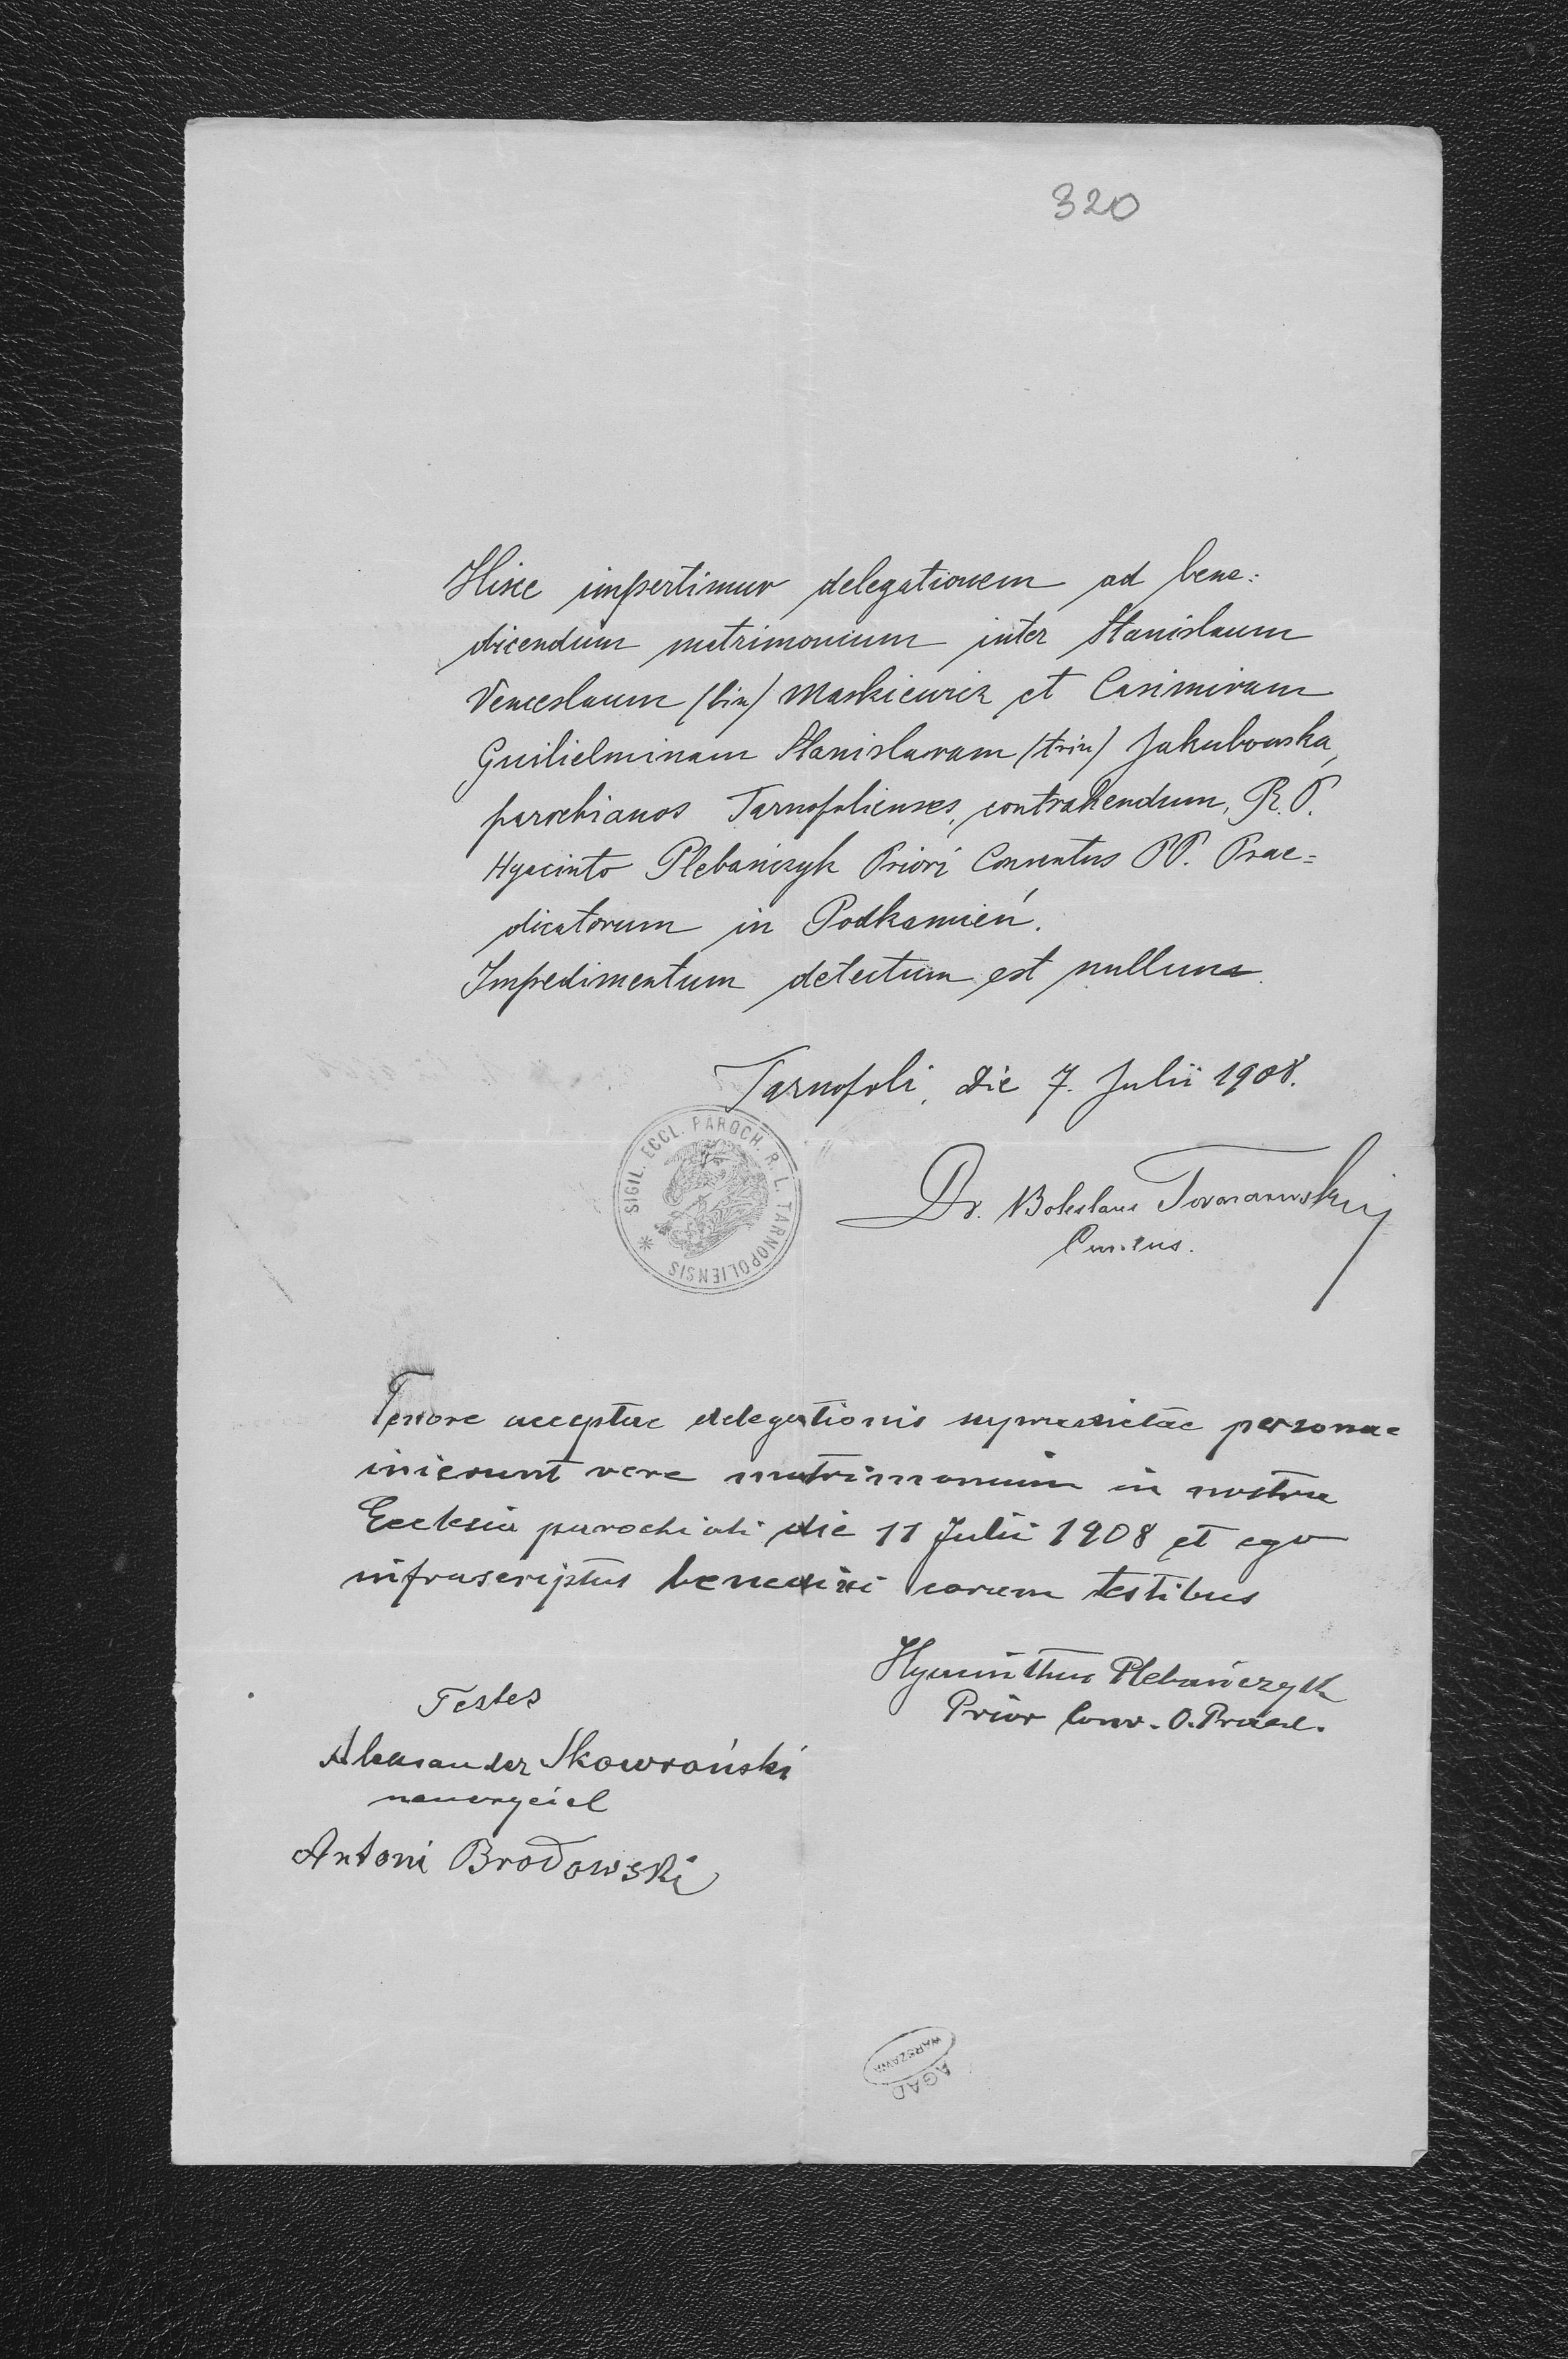 320
Hisce impertimur delegationem ad bene=
dicendum matrimonium inter Stanislaum
Venceslaum /bin/ Maskiewicz et Casimiram
Guilielminam Stanislavam /trin/ Jakubowska,
parochianos Tarnopolienses, contrahendum, R. P.
Hyacinto Plebańczyk Priori Conventus PP. Prae=
dicatorum in Podkamień.
Impedimentum detectum est nullum.
Tarnopoli, die 7. Julii 1908.
SIGIL. ECCL. PAROCH. R. L. TARNOPOLIENSIS *
Dr. Boleslaus
Tenore acceptae delegationis supradictae personae
inierunt vere matrimonium in nostra
Ecclesia parochiali die 11 Julii 1908 et ego
infrascriptus benedixi coram testibus
Hyacinthus Plebańczyk
Prior Conv. O. Praed.
Testes
Aleksander Skowroński
nauczyciel
Antoni Brodowski
AGAD
WARSZAWA